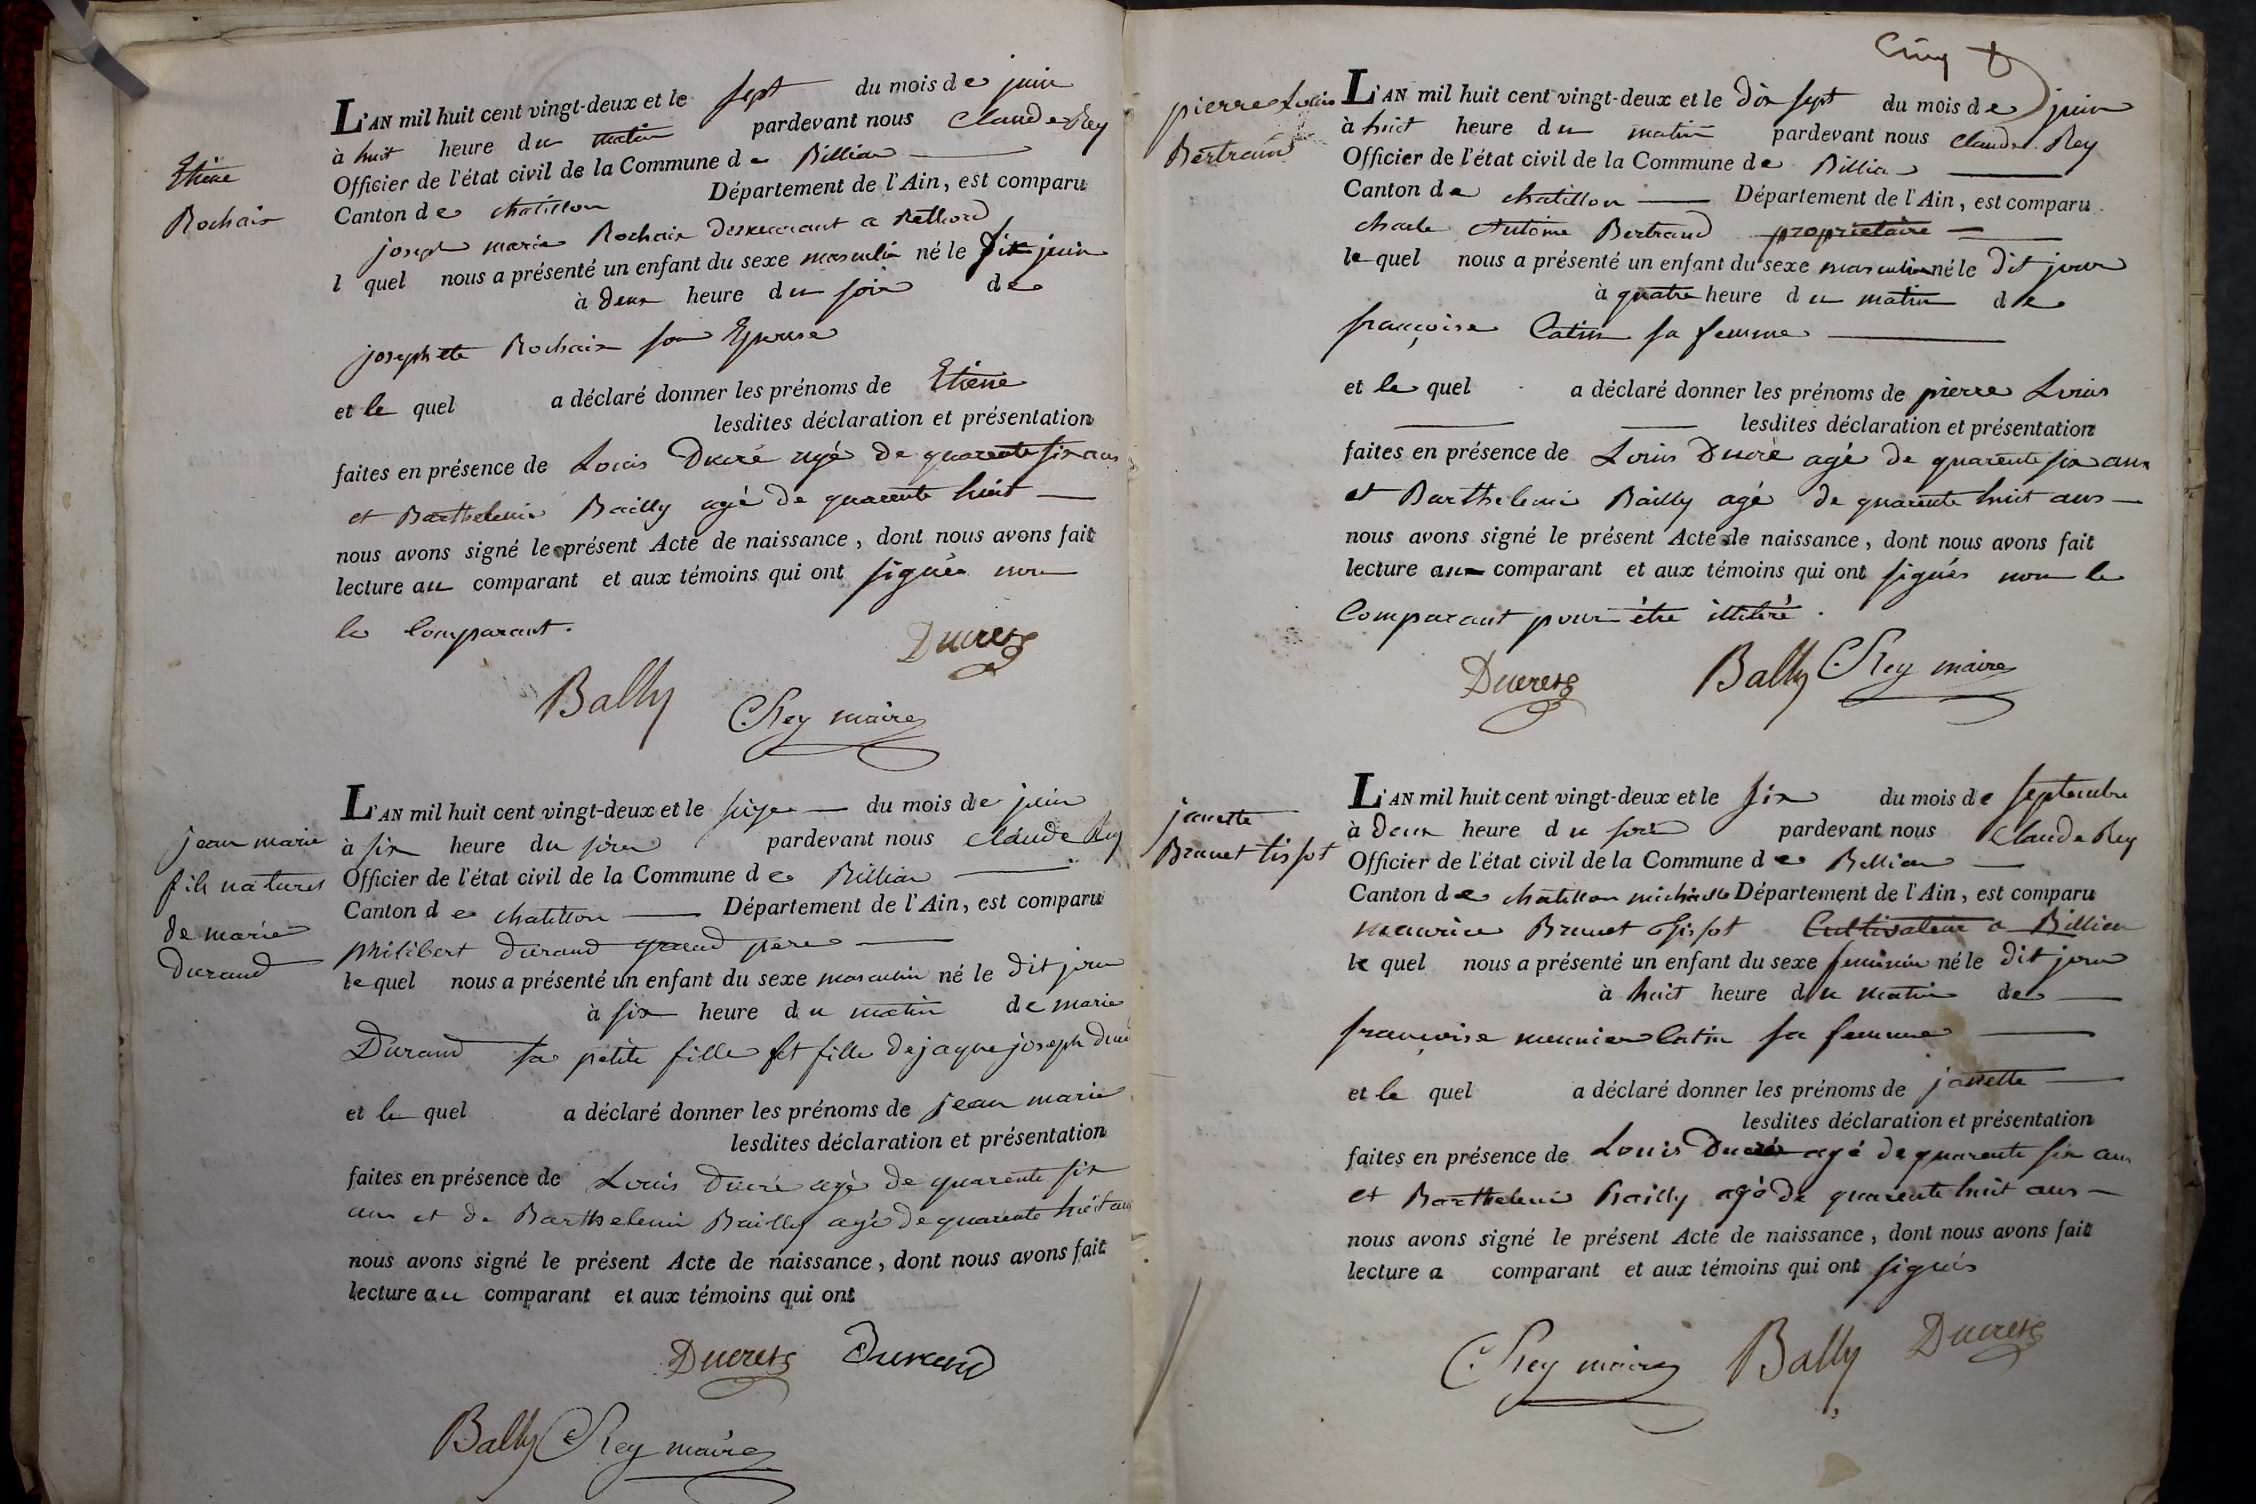 Etiene
Rochaix
L'AN mil huit cent vingt-deux et le sept du mois de juin
à huit heure du matin pardevant nous Claude Rey
Officier de l'état civil de la Commune de Billiat
Canton de chatillon Département de l'Ain, est comparu
joseph marie Rochaix demeurant a Rethord
l quel nous a présenté un enfant du sexe masculin né le six juin
à deux heure du soir de
josephete Rochaix son Epouse
et le quel a déclaré donner les prénoms de Etiene
lesdites déclaration et présentation
faites en présence de Louis Ducré agé de quarente six ans
et Barthelemi Bailly agé de quarente huit
nous avons signé le présent Acte de naissance, dont nous avons fait
lecture au comparant et aux témoins qui ont signés non
le Comparant.
Ducret
Bally
C Rey maire
jean marie
fils naturel
de marie
Durand
L'AN mil huit cent vingt-deux et le seize du mois de juin
à six heure du soir pardevant nous Claude Rey
Officier de l'état civil de la Commune de Billiat
Canton de chatillon Département de l'Ain, est comparu
philibert Durand grand pere
le quel nous a présenté un enfant du sexe masculin né le dit jour
à six heure du matin de marie
Durand sa petite fille et fille de jaque joseph
et le quel a déclaré donner les prénoms de jean marie
lesdites déclaration et présentation
faites en présence de Louis Ducré agé de quarente six
ans et de Barthelemi Bailly agé de quarente huit ans
nous avons signé le présent Acte de naissance, dont nous avons fait
lecture au comparant et aux témoins qui ont
Ducret Durand
Bally C Rey maire
Cinq
pierre Louis
Bertrand
L'AN mil huit cent vingt-deux et le dix sept du mois de juin
à huit heure du matin pardevant nous Claude Rey
Officier de l'état civil de la Commune de Billiat
Canton de chatillon Département de l'Ain, est comparu
charle Antoine Bertrand propriétaire
le quel nous a présenté un enfant du sexe masculin né le dit jour
à quatre heure du matin de
françoise Catin sa femme
et le quel a déclaré donner les prénoms de pierre Louis
lesdites déclaration et présentation
faites en présence de Louis Ducré agé de quarente six ans
et Barthelemi Bailly agé de quarente huit ans
nous avons signé le présent Acte de naissance, dont nous avons fait
lecture au comparant et aux témoins qui ont signés non le
Comparant pour être illitéré.
Ducret Bally C Rey maire
janette
Brunet tissot
L'AN mil huit cent vingt-deux et le six du mois de septembre
à deux heure du soir pardevant nous Claude Rey
Officier de l'état civil de la Commune de Billiat
Canton de chatillon michaille Département de l'Ain, est comparu
maurice Brunet tissot Cultivateur a Billiat
le quel nous a présenté un enfant du sexe feminin né le dit jour
à huit heure du matin de
françoise meunier Catin sa femme
et le quel a déclaré donner les prénoms de janette
lesdites déclaration et présentation
faites en présence de Louis Ducré agé de quarente six ans
et Barthelemi Bailly agé de quarente huit ans
nous avons signé le présent Acte de naissance, dont nous avons fait
lecture a comparant et aux témoins qui ont signés
C Rey maire Bally Ducret